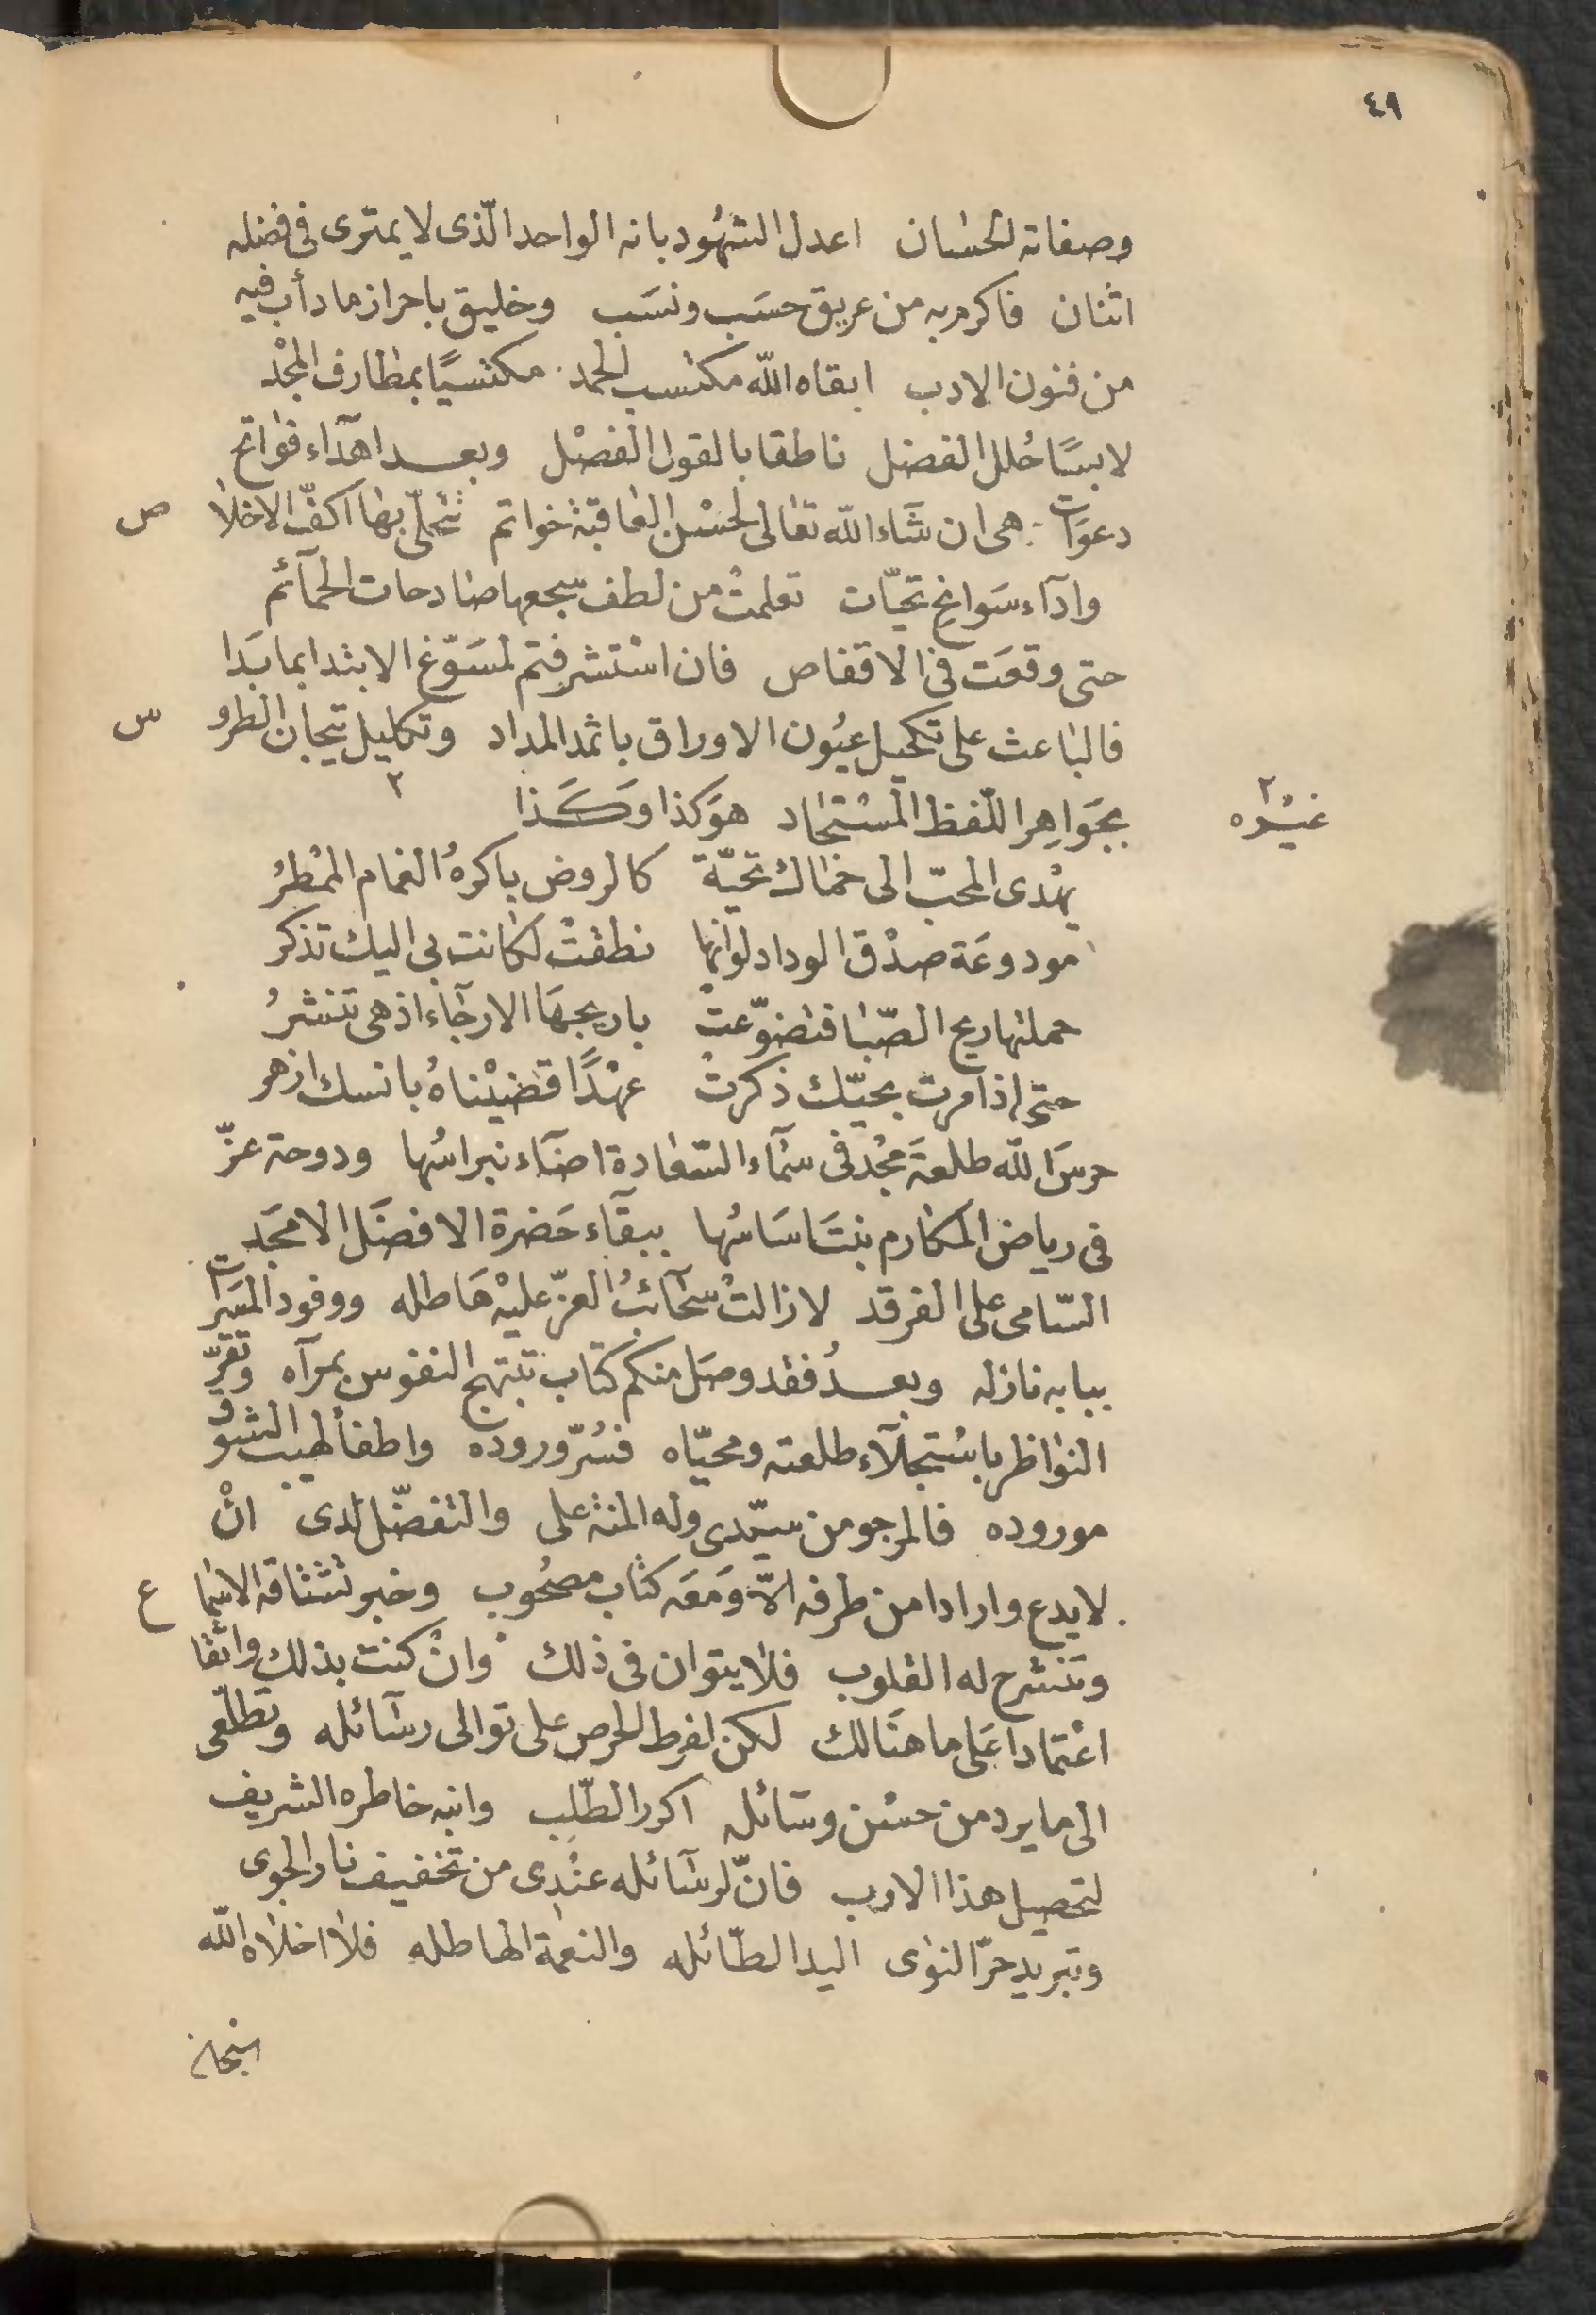 ٤٩
وصفاته الحسان اعدل الشهُود بانه الواحد الّذى لا يمترى فى فضله
اثنان فاكرم به من عريق حسَب ونسَب وخليق باحراز ما دأب فيه
من فنون الادب ابقاه الله مكتسب الحمد مكتسيًا بمطارف المجْد
لابسًا حُلل الفضل ناطقا بالقول الفصْل وبعد اهدآء فواتح
دعوَات هى ان شَاء الله تعالى لحسْن العاقبة خواتم تتحلّى بها اكفّ الاخلا ص
وادآء سَوانح تحيّات تعلمتْ من لطف سجعها صادحات الحمآئم
حتى وقعَت فى الاقفاص فان استشرفتم لمسَوّغ الابتدا بما بَدا
فالباعث على تكحيل عيُون الاوراق باثمد المداد وتكليل تيجان الطرو س
بجَواهِر اللّفظ المسْتجاد هوَ كذا وَكَذا ٢
٢ غيْره
يهْدى المحبّ الى حماك تحيّة كالروض باكرهُ الغمام الممْطرُ
مودوعَة صدْق الوداد لوانها نطقتْ لكانت بى اليك تذكر
حملتها ريح الصّبا فتضوّعتْ باريجهَا الارجَاء اذ هى تنشرُ
حتى اذا مرت بحيّك ذكرتْ عهْدًا قضيْناهُ بانسك ازهر
حرسَ الله طلعةَ مجْد فى سمآء السّعادة اضآء نبراسُها ودوحة عزّ
فى رياض المكارم نبتَ اسَاسُها ببقآء حَضرة الافضَل الامجَد
السّامى على الفرقد لازالتْ سحآئبُ العزّ عليْه هَاطله ووفود المسَرات
ببابه نازله وبعدُ فقد وصَل منكم كتاب تبتهج النفوس بمرآه وتقرّ
النواظر باسْتجلآء طلعته ومحيّاه فسُرّ وروده واطفأ لهيب الشوق
موروده فالمرجو من سيّدى وله المنة على والتفضّل لدى انْ
لا يدع وارادا من طرفه الاّ وَمَعَه كتاب مصحُوب وخبر تشتاقه الاسما ع
وتنشرح له القلوب فلا يتوان فى ذلك وانْ كنت بذلك واثقا
اعْتمادا عَلى ما هنَالك لكن لفرط الحرص على توالى رسَائله وتطلّعى
الى ما يرد من حسْن وسَائله اكرر الطّلب وانبه خاطره الشريف
لتحصيل هذا الارب فانّ لرسَآئله عنْدى من تخفيف نار الجوى
وتبريد حرّ النوى اليد الطّائله والنعمة الهاطله فلا اخلاه الله